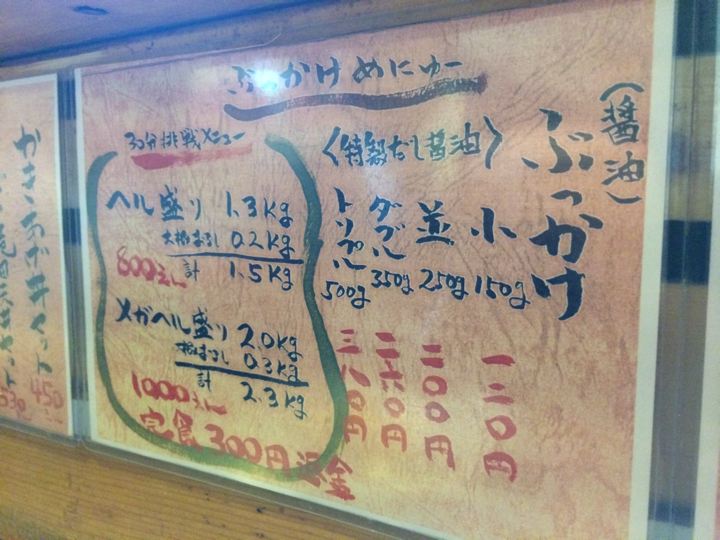 ぶっかけめにゅー
(醤油)
ぶっかけ
〈特製だし醤油〉
小 150g 一二〇円
並 250g 二〇〇円
ダブル 350g 二六〇円
トリプル 500g
30分挑戦メニュー
ヘル盛り 1.3kg
大根おろし 0.2kg
計 1.5kg
800えん
メガヘル盛り 2.0kg
大根おろし 0.3kg
計 2.3kg
1000えん
定食300円返金
かきあげ丼セット
450